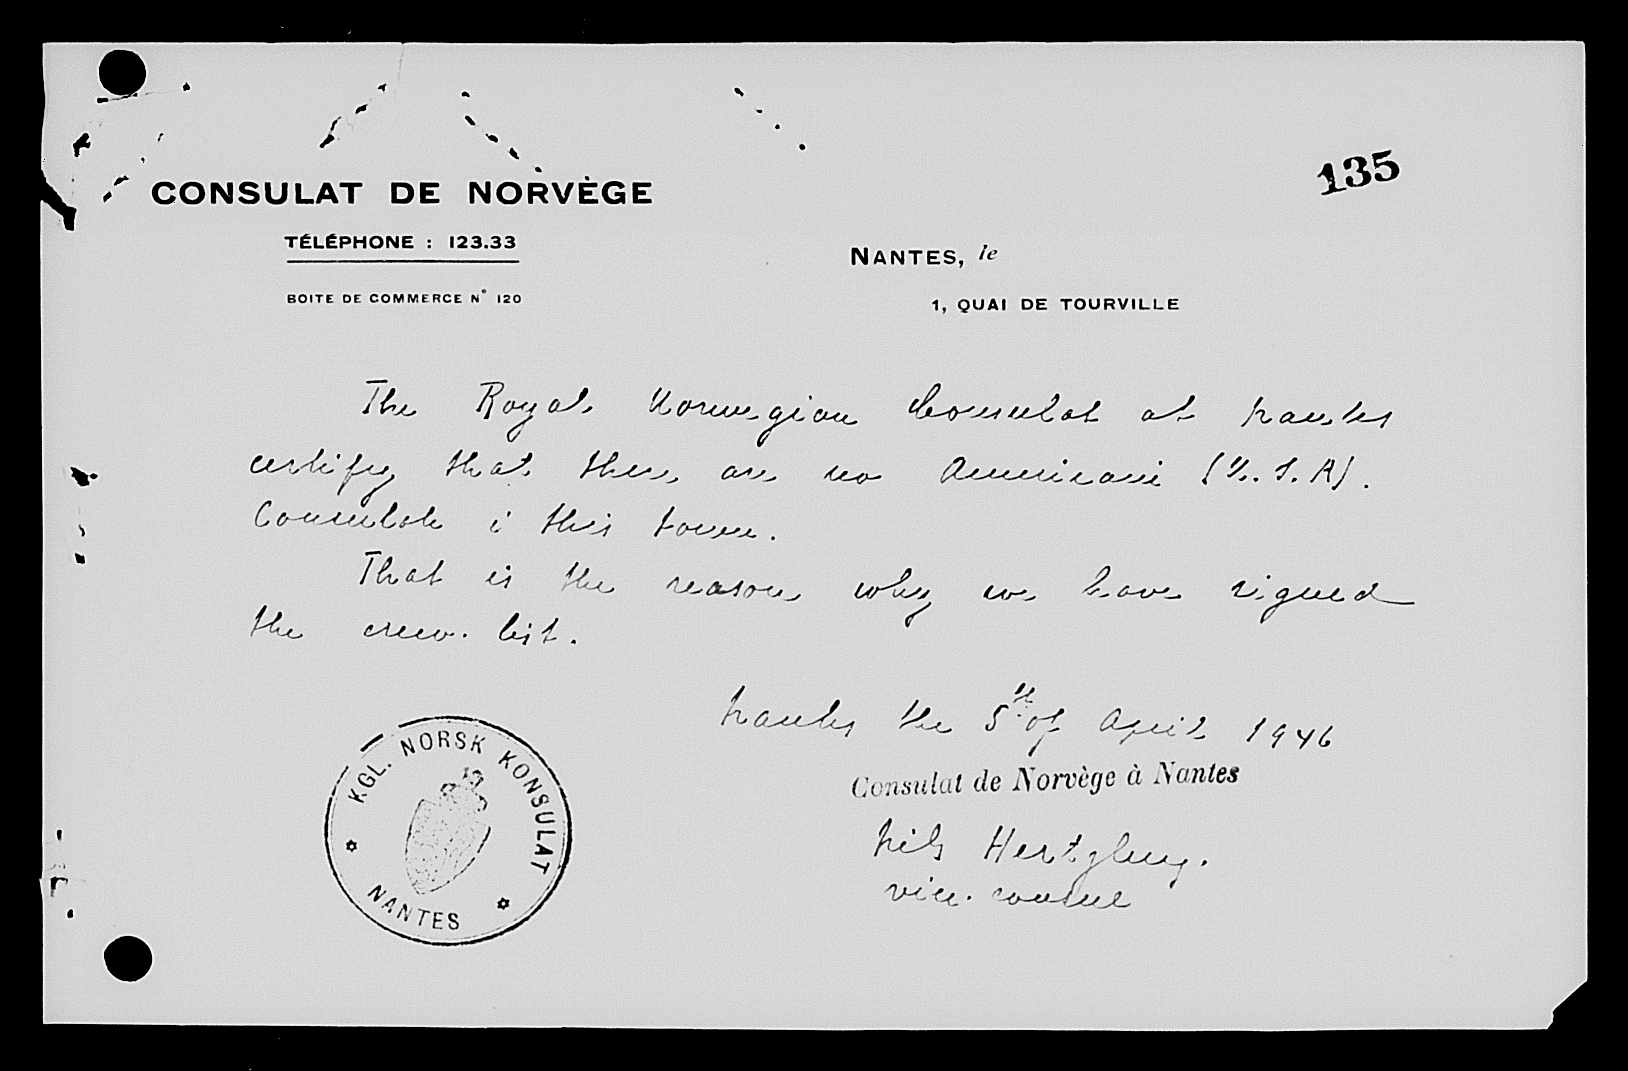 135
CONSULAT DE NORVÈGE
TÉLÉPHONE : 123.33
BOITE DE COMMERCE N° 120
NANTES, le
1, QUAI DE TOURVILLE
The Royal Norwegian Consulat at Nantes
certify that there are no Americani (U.S.A).
Consulate i this town.
That is the reason why we have signed
the crew-list.
Nantes the 5th of April 1946
Consulat de Norvège à Nantes
Nils Hertzberg.
vice-consul
KGL. NORSK KONSULAT
NANTES